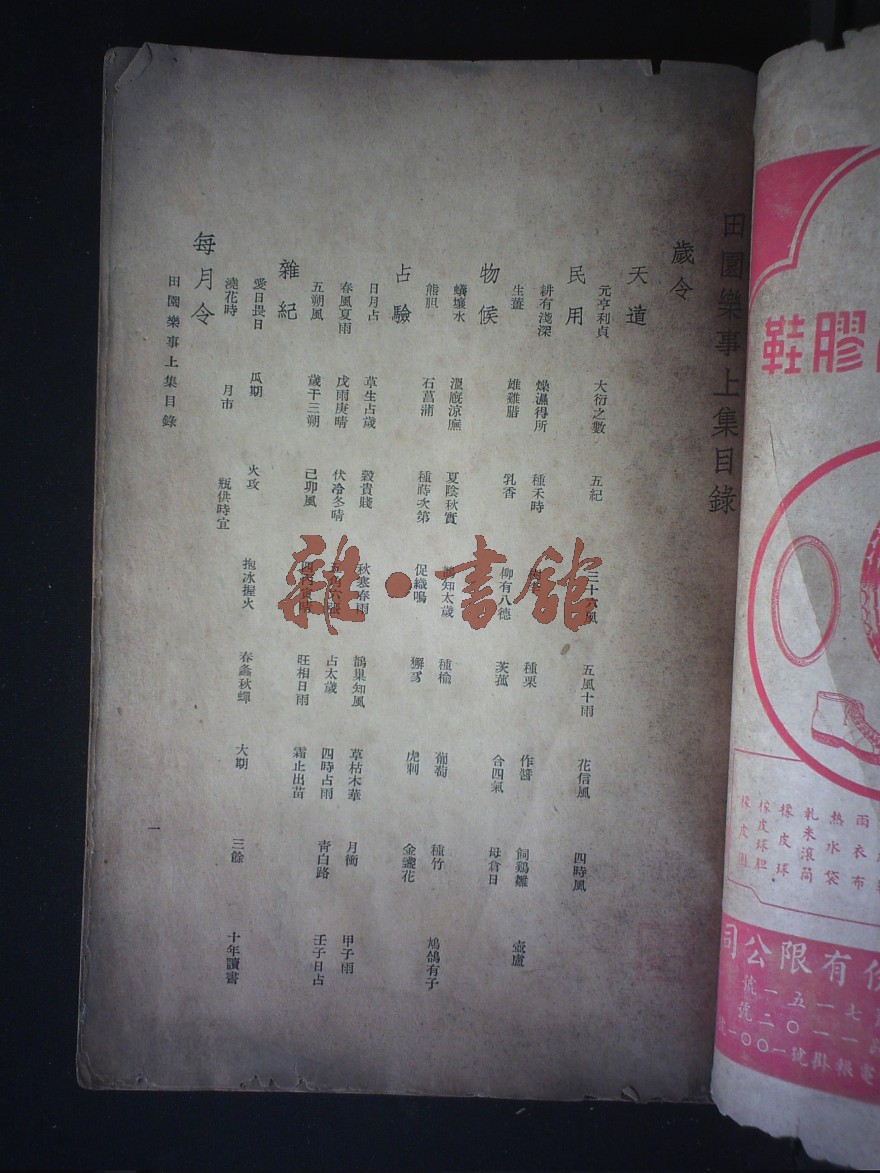 田園樂事上集目錄
歲令
天道
元亨利貞 大衍之數 五紀 三十六風 五風十雨 花信風 四時風
民用
耕有淺深 燥濕得所 種禾時 種栗 作醬 飼鷄雛 壺盧
生薑 雄雞腊 乳香 柳有八德 茨菰 合四氣 母倉日
物候
蟻壤水 溫廐涼廡 夏陰秋實 鵲知太歲 種楡 葡萄 種竹 鳩鴿有子
熊胆 石菖蒲 種蒔次第 促織鳴 獺 虎刺 金盞花
占驗
日月占 草生占歲 穀貴賤 秋寒春雨 鵲巢知風 草枯木華 月衝 甲子雨
春風夏雨 戊雨庚晴 伏冷冬晴 占太歲 四時占雨 青白路 壬子日占
五朔風 歲干三朔 己卯風 旺相日雨 霜止出苗
雜紀
愛日畏日 瓜期 火攻 抱冰握火 春螽秋蟬 大期 三餘 十年讀書
澆花時 月市 瓶供時宜
每月令
田園樂事上集目錄
一
雜·書館
膠鞋
雨衣布
熱水袋
軋米滾筒
橡皮球
橡皮球胆
橡皮圈
份有限公司
七一五一號
一一〇二號
電報掛號一〇〇一號